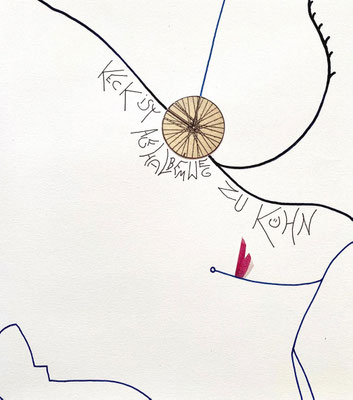 KECK iST AUF HALBEM WEG ZU KÜHN